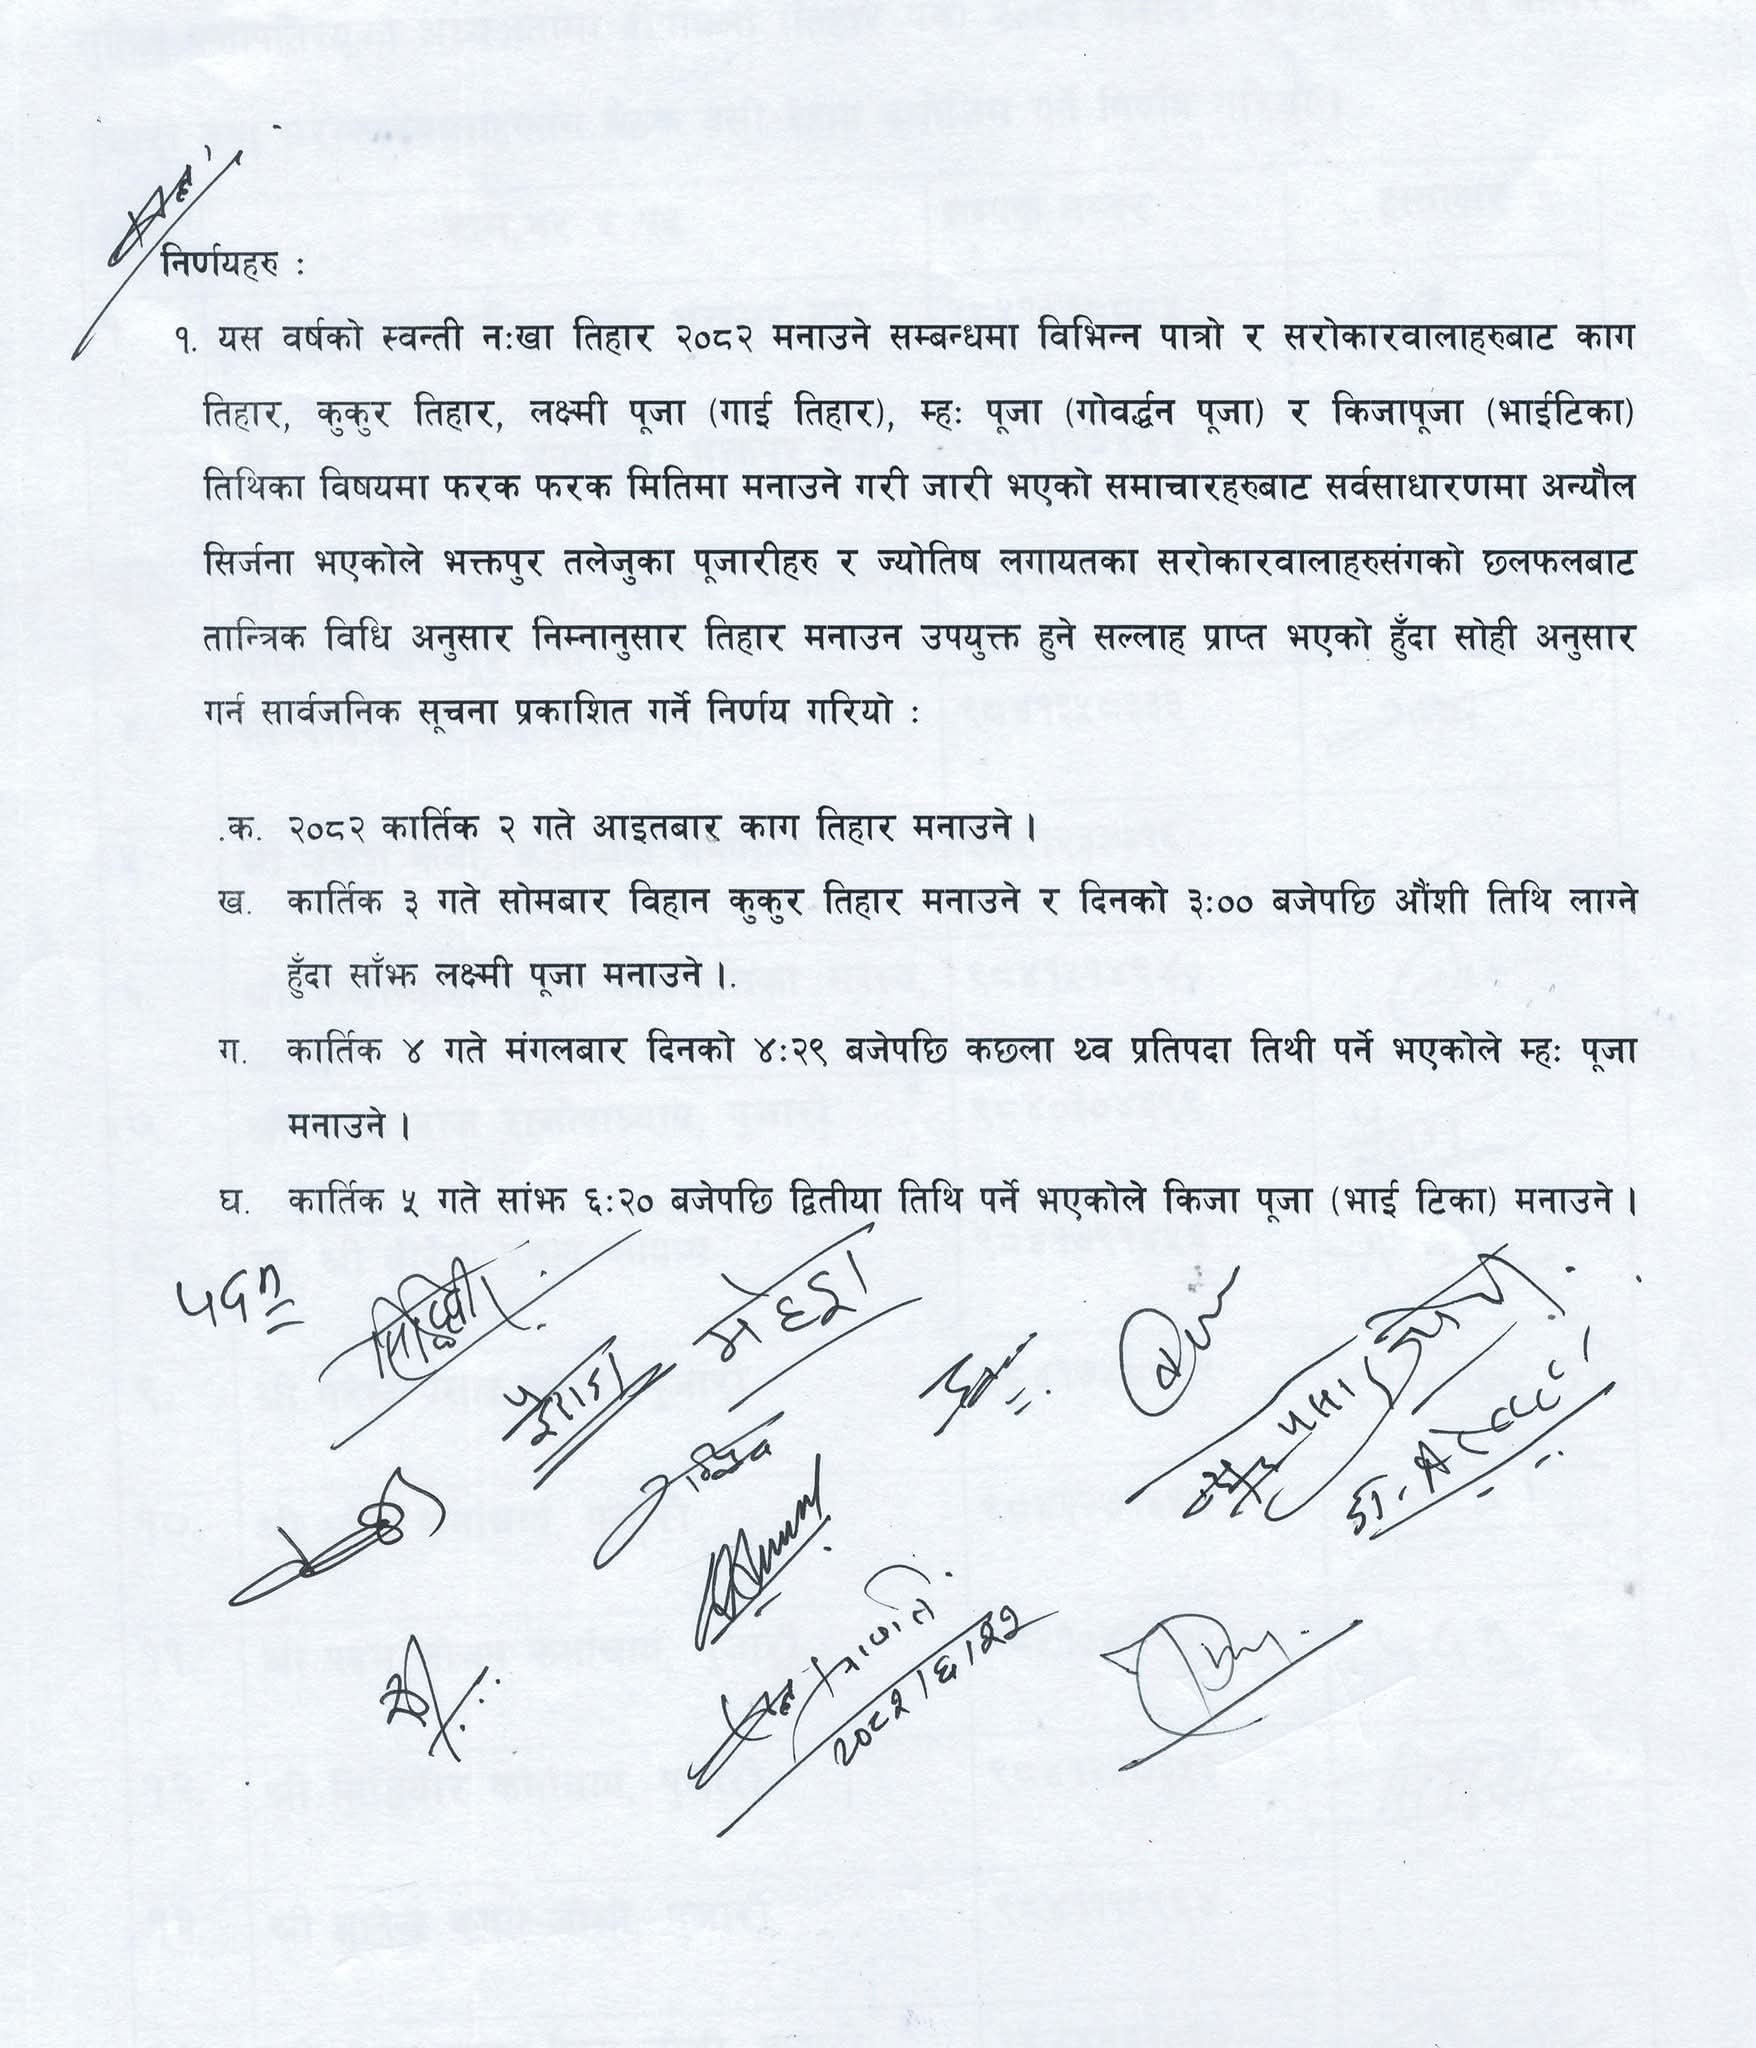 निर्णयहरु :
१. यस वर्षको स्वन्ती न:खा तिहार २०८२ मनाउने सम्बन्धमा विभिन्न पात्रो र सरोकारवालाहरुबाट काग
तिहार, कुकुर तिहार, लक्ष्मी पूजा (गाई तिहार), म्ह: पूजा (गोवर्द्धन पूजा) र किजापूजा (भाईटिका)
तिथिका विषयमा फरक फरक मितिमा मनाउने गरी जारी भएको समाचारहरुबाट सर्वसाधारणमा अन्यौल
सिर्जना भएकोले भक्तपुर तलेजुका पूजारीहरु र ज्योतिष लगायतका सरोकारवालाहरुसंगको छलफलबाट
तान्त्रिक विधि अनुसार निम्नानुसार तिहार मनाउन उपयुक्त हुने सल्लाह प्राप्त भएको हुँदा सोही अनुसार
गर्न सार्वजनिक सूचना प्रकाशित गर्ने निर्णय गरियो :
.क. २०८२ कार्तिक २ गते आइतबार काग तिहार मनाउने ।
ख. कार्तिक ३ गते सोमबार विहान कुकुर तिहार मनाउने र दिनको ३:०० बजेपछि औंशी तिथि लाग्ने
हुँदा साँझ लक्ष्मी पूजा मनाउने ।.
ग. कार्तिक ४ गते मंगलबार दिनको ४:२९ बजेपछि कछ्ला थ्व प्रतिपदा तिथी पर्ने भएकोले म्ह: पूजा
मनाउने ।
घ. कार्तिक ५ गते सांझ ६:२० बजेपछि द्वितीया तिथि पर्ने भएकोले किजा पूजा (भाई टिका) मनाउने ।
२०८२।६।२२